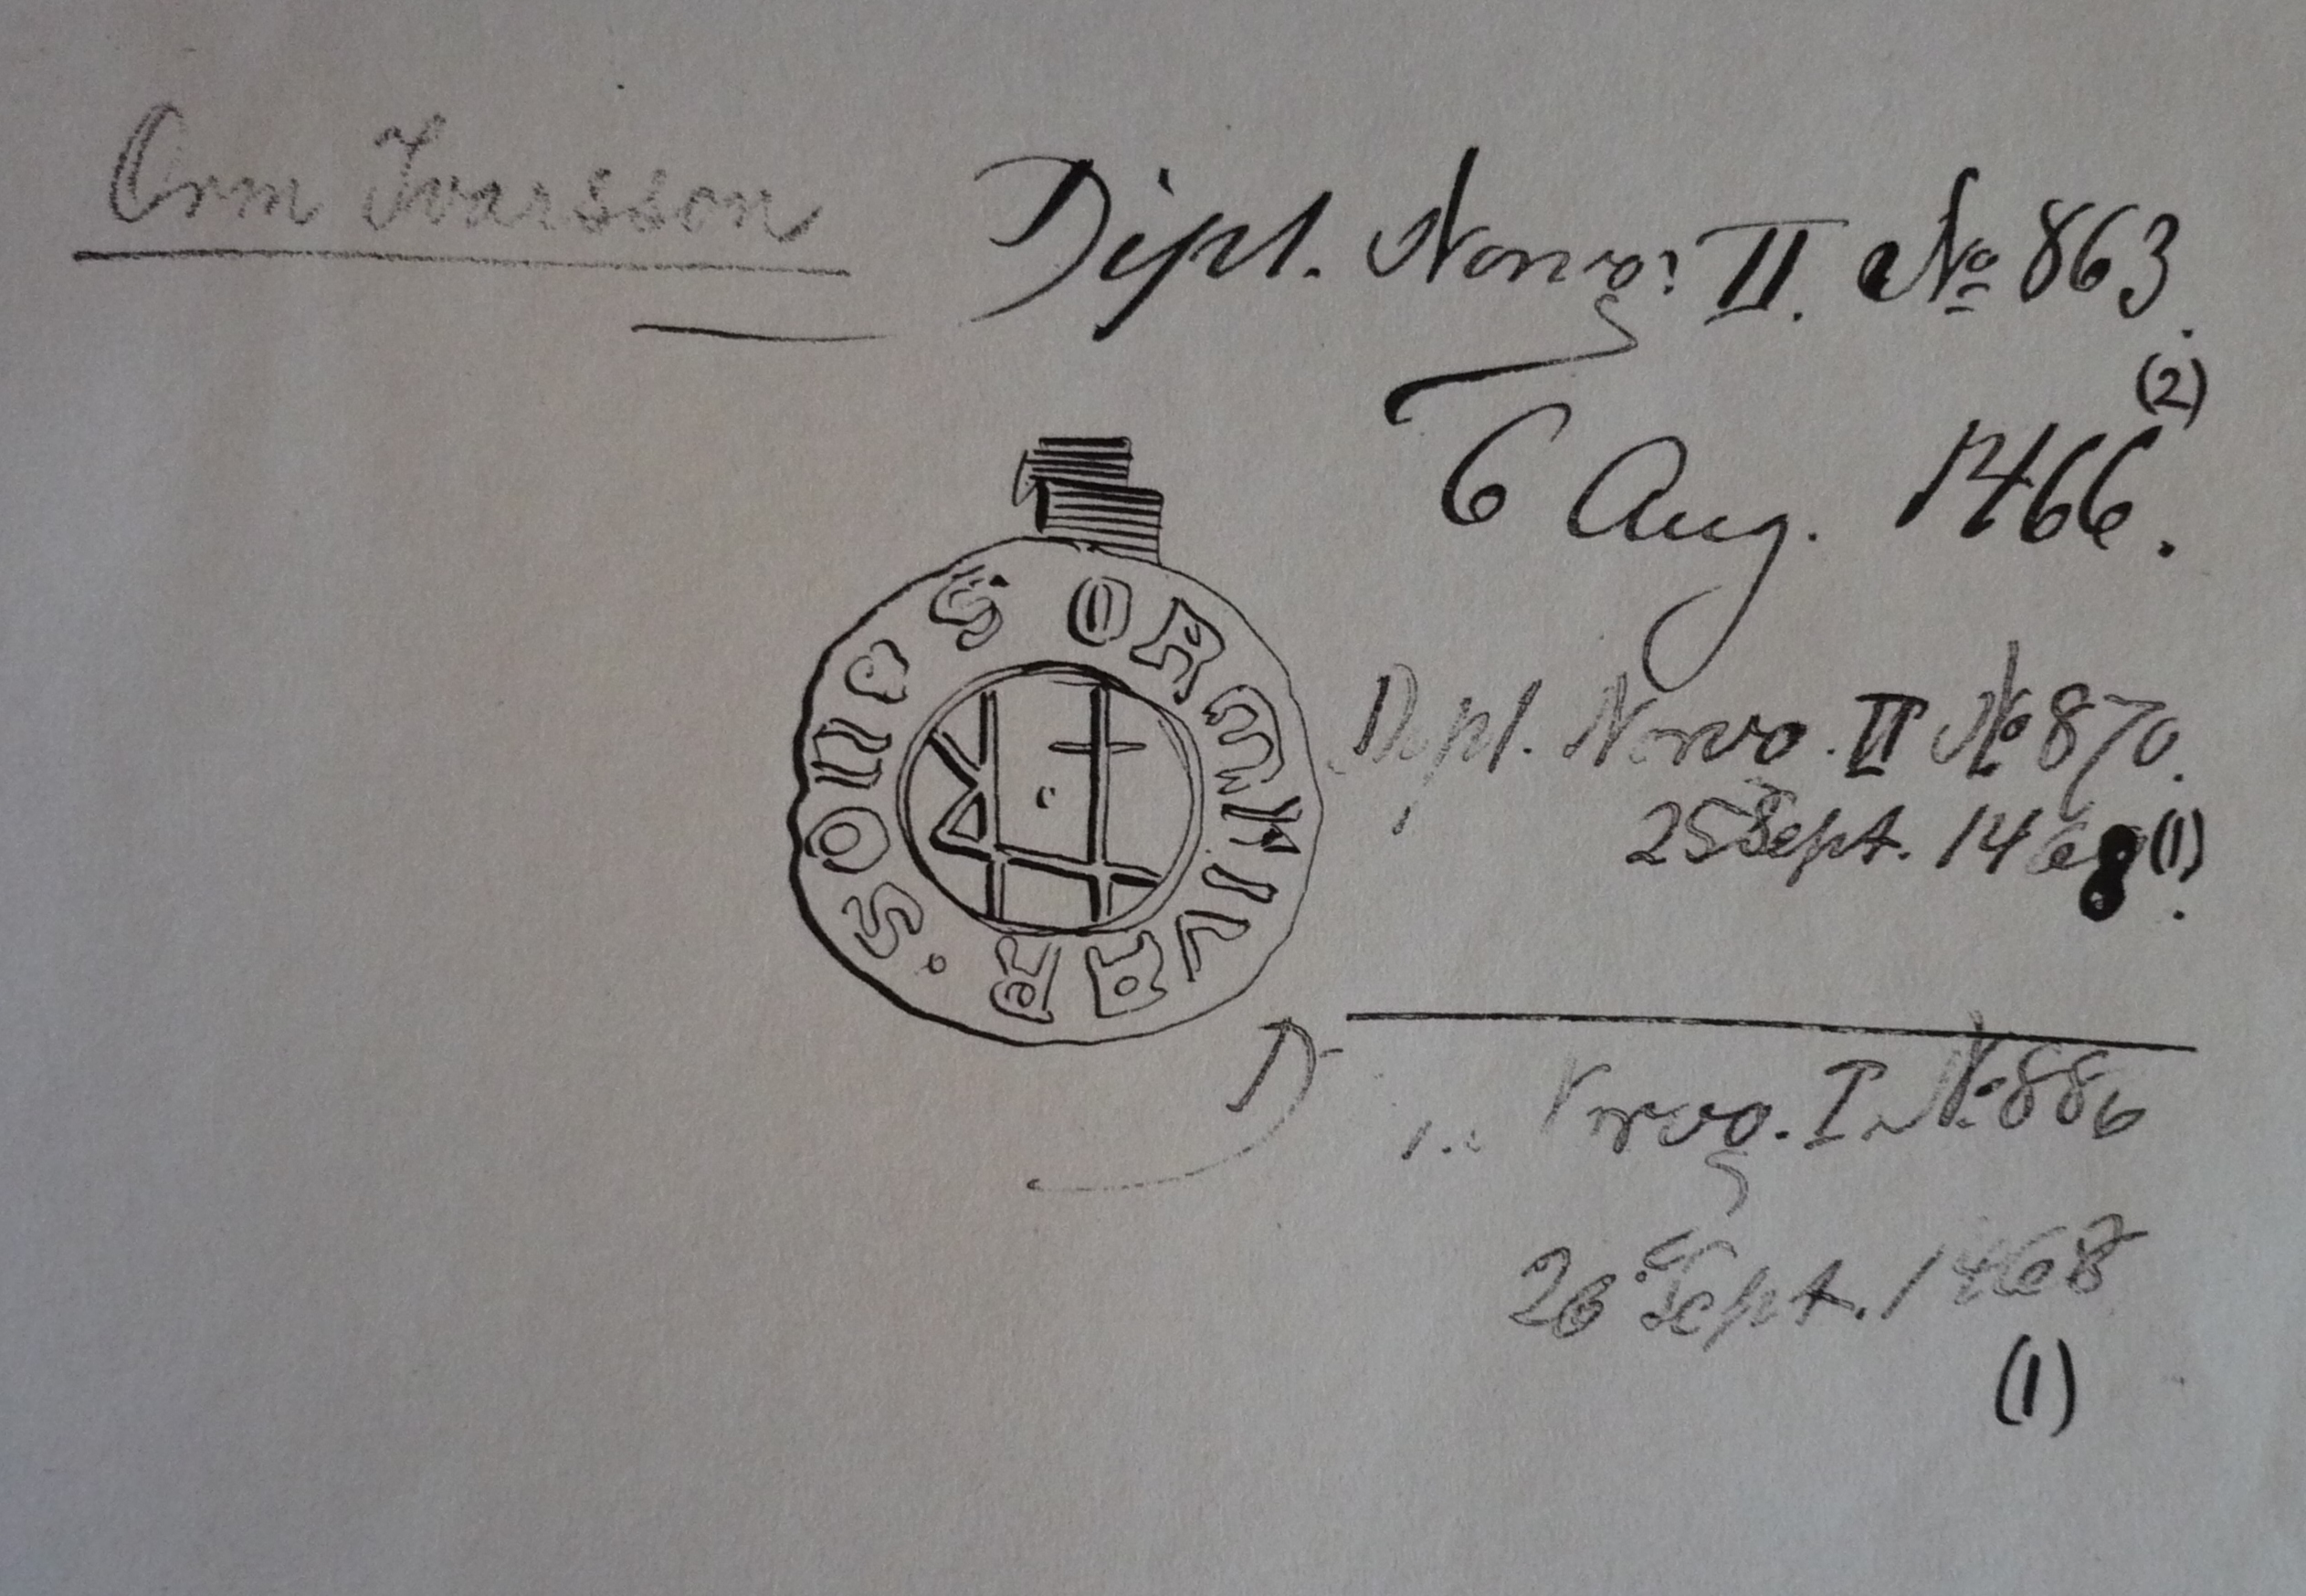 Orm Ivarsson
Dipl. Norvg: II. No 863.
(2)
6 Aug. 1466.
S ORM
Dipl. Norvg. II No 870.
25 Sept. 1468 (1).
D Norvg. I No 886
26 Sept. 1468
(1)